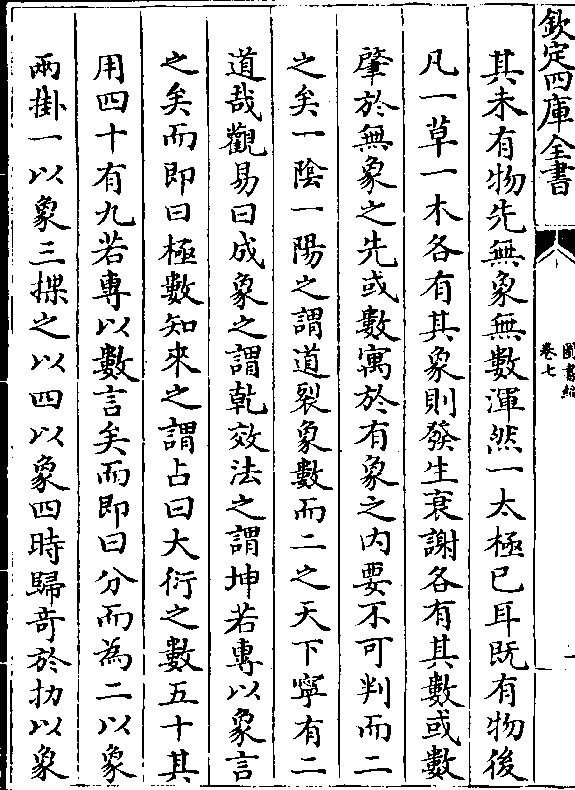 欽定四庫全書
圖書編
卷七
其未有物先無象無數渾然一太極已耳既有物後
凡一草一木各有其象則發生衰謝各有其數或數
肇於無象之先或數寓於有象之内要不可判而二
之矣一陰一陽之謂道裂象數而二之天下寧有二
道哉觀易曰成象之謂乾效法之謂坤若專以象言
之矣而即曰極數知來之謂占曰大衍之數五十其
用四十有九若專以數言矣而即曰分而為二以象
兩掛一以象三揲之以四以象四時歸竒於扐以象